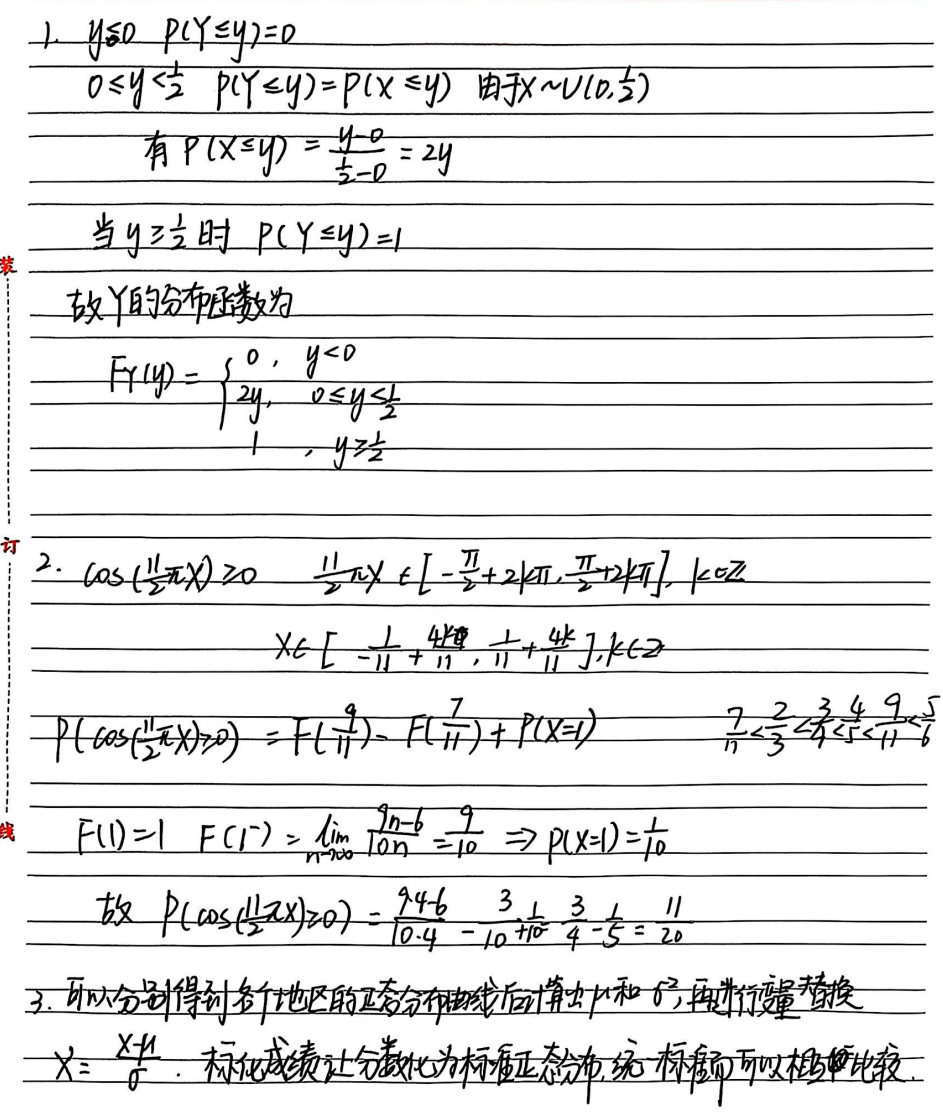 1. y≤0 P(Y≤y)=0
0≤y<1/2 P(Y≤y)=P(X≤y) 由于X~U(0,1/2)
有 P(X≤y) = (y-0)/(1/2-0) = 2y
当 y≥1/2 时 P(Y≤y)=1
装
故Y的分布函数为
F_Y(y) = { 0, y<0
2y, 0≤y<1/2
1, y≥1/2
订
2. cos(11/2 πX)≥0 11/2 πX ∈[-π/2+2kπ, π/2+2kπ], k∈Z
X∈[-1/11+4k/11, 1/11+4k/11], k∈Z
P(cos(11/2 πX)≥0) = F(9/11) - F(7/11) + P(X=1) 7/11<2/3<3/4<4/5<9/11<5/6
线
F(1)=1 F(1⁻) = lim n→∞ (9n-6)/(10n) = 9/10 ⇒ P(X=1)=1/10
故 P(cos(11/2 πX)≥0) = (9·4-6)/(10·4) - 3/10 + 1/10 = 3/4 - 1/5 = 11/20
3. 可以分别得到各个地区的正态分布曲线后计算出μ和σ², 再进行变量替换
X = (X-μ)/σ. 标化成绩让分数化为标准正态分布, 统一标准即可以相互比较.